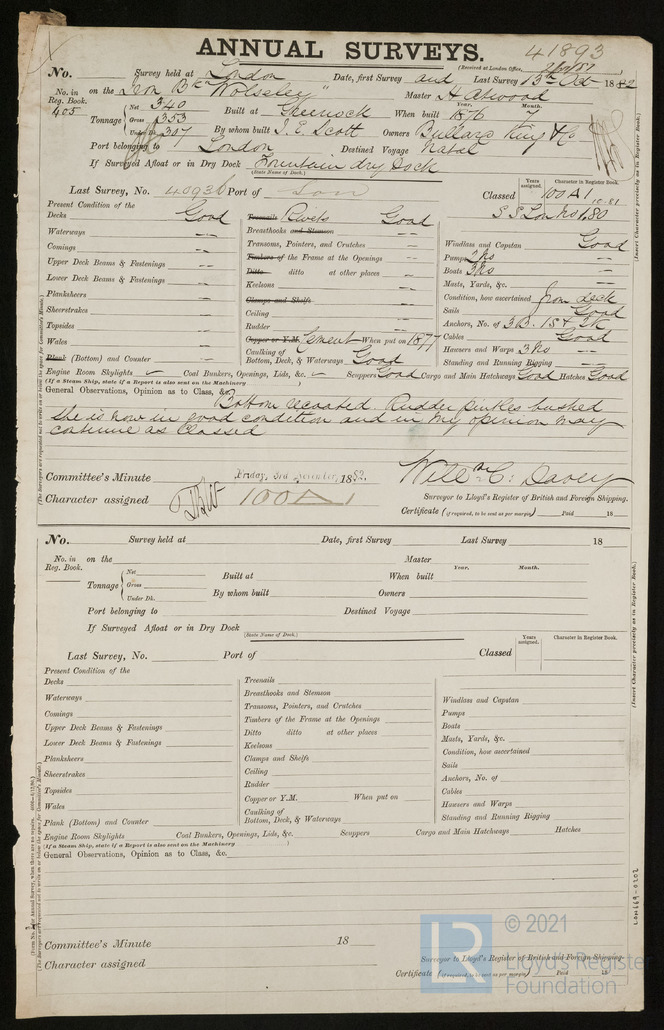 ANNUAL SURVEYS.
41893
(Received at London Office,
No. Survey held at London Date, first Survey and Last Survey 13th Oct 1882
No. in Reg. Book. 405 on the Iron Bkn "Wolseley" Master H Atwood
Tonnage Net 340 Gross 353 Under Dk. 307 Built at Greenock When built Year. 1876 Month. 7
By whom built J. E. Scott Owners Bullard King & Co
Port belonging to London Destined Voyage Natal
If Surveyed Afloat or in Dry Dock Fountain dry Dock
(State Name of Dock.)
Last Survey, No. 40936 Port of Lon Classed Years assigned. Character in Register Book. 100A1 10.81
S S Lon No 1.80
Present Condition of the
Decks Good
Waterways "
Comings "
Upper Deck Beams & Fastenings "
Lower Deck Beams & Fastenings "
Planksheers "
Sheerstrakes "
Topsides "
Wales "
Plank (Bottom) and Counter "
Treenails Rivets Good
Breasthooks and Stemson "
Transoms, Pointers, and Crutches "
Timbers of the Frame at the Openings "
Ditto ditto at other places "
Keelsons "
Clamps and Shelfs "
Ceiling "
Rudder "
Copper or Y.M. Cement When put on 1877
Caulking of Bottom, Deck, & Waterways Good
Windlass and Capstan Good
Pumps 2 No "
Boats 3 No "
Masts, Yards, &c. "
Condition, how ascertained from deck
Sails Good
Anchors, No. of 3B. 1St. 2K
Cables Good
Hawsers and Warps 3 No "
Standing and Running Rigging "
Engine Room Skylights Coal Bunkers, Openings, Lids, &c. Scuppers Good Cargo and Main Hatchways Good Hatches Good
(If a Steam Ship, state if a Report is also sent on the Machinery )
General Observations, Opinion as to Class, &c.
Bottom recoated. Rudder pintles bushed
She is now in good condition and in my opinion may
continue as Classed
Committee's Minute Friday, 3rd November, 1882.
Character assigned 100A1
Willm C: Davey
Surveyor to Lloyd's Register of British and Foreign Shipping.
Certificate (if required, to be sent as per margin) Paid 18
(Insert Character precisely as in Register Book.)
No. Survey held at Date, first Survey Last Survey 18
No. in Reg. Book. on the Master
Tonnage Net Gross Under Dk. Built at When built Year. Month.
By whom built Owners
Port belonging to Destined Voyage
If Surveyed Afloat or in Dry Dock
(State Name of Dock.)
Last Survey, No. Port of Classed Years assigned. Character in Register Book.
Present Condition of the
Decks
Waterways
Comings
Upper Deck Beams & Fastenings
Lower Deck Beams & Fastenings
Planksheers
Sheerstrakes
Topsides
Wales
Plank (Bottom) and Counter
Treenails
Breasthooks and Stemson
Transoms, Pointers, and Crutches
Timbers of the Frame at the Openings
Ditto ditto at other places
Keelsons
Clamps and Shelfs
Ceiling
Rudder
Copper or Y.M. When put on
Caulking of Bottom, Deck, & Waterways
Windlass and Capstan
Pumps
Boats
Masts, Yards, &c.
Condition, how ascertained
Sails
Anchors, No. of
Cables
Hawsers and Warps
Standing and Running Rigging
Engine Room Skylights Coal Bunkers, Openings, Lids, &c. Scuppers Cargo and Main Hatchways Hatches
(If a Steam Ship, state if a Report is also sent on the Machinery )
General Observations, Opinion as to Class, &c.
Committee's Minute 18
Character assigned
Surveyor to Lloyd's Register of British and Foreign Shipping.
Certificate (if required, to be sent as per margin) Paid 18
(Insert Character precisely as in Register Book.)
LON669-0202
LR
© 2021
Lloyd's Register
Foundation